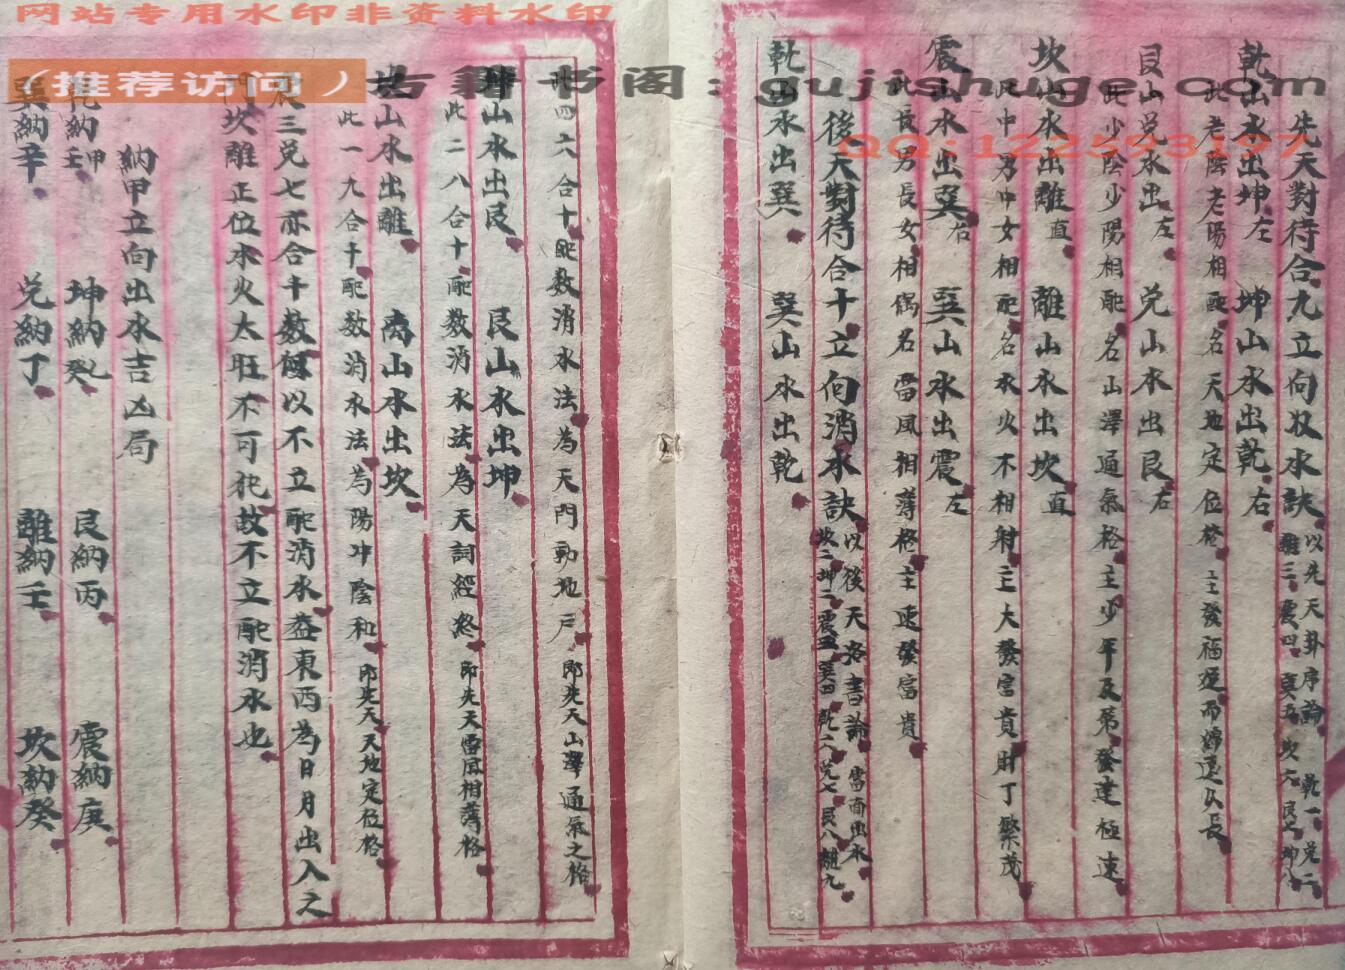 网站专用水印非资料水印
（推荐访问）古籍书阁：gujishuge.com
QQ:122593197
先天對待合九立向收水訣 以先天卦序論 乾一 兑二 離三 震四 巽五 坎六 艮七 坤八
乾山水出坤左 坤山水出乾右
此老陰老陽相配名天地定位格主發福遲而綿遠久長
艮山兑水出左 兑山水出艮右
此少陰少陽相配名山澤通氣格主少年及第發達極速
坎山水出離直 離山水出坎直
此中男中女相配名水火不相射主大發富貴財丁繁茂
震山水出巽右 巽山水出震左
此長男長女相偶名雷風相薄格主速發富貴
後天對待合十立向消水訣 以後天洛書論 當面出水 坎一坤二震三巽四乾六兑七艮八離九
乾山水出巽 巽山水出乾
此四六合十配数消水法為天門動地户 即先天山澤通氣之格
坤山水出艮 艮山水出坤
此二八合十配数消水法為天詞經終 即先天雷風相薄格
坎山水出離 离山水出坎
此一九合十配数消水法為陽冲陰和 即先天天地定位格
震三兑七亦合十数何以不立配消水益東西為日月出入之
門坎離正位水火太旺不可犯故不立配消水也
納甲立向出水吉凶局
乾納甲壬 坤納乙癸 艮納丙 震納庚
巽納辛 兑納丁 離納壬 坎納癸